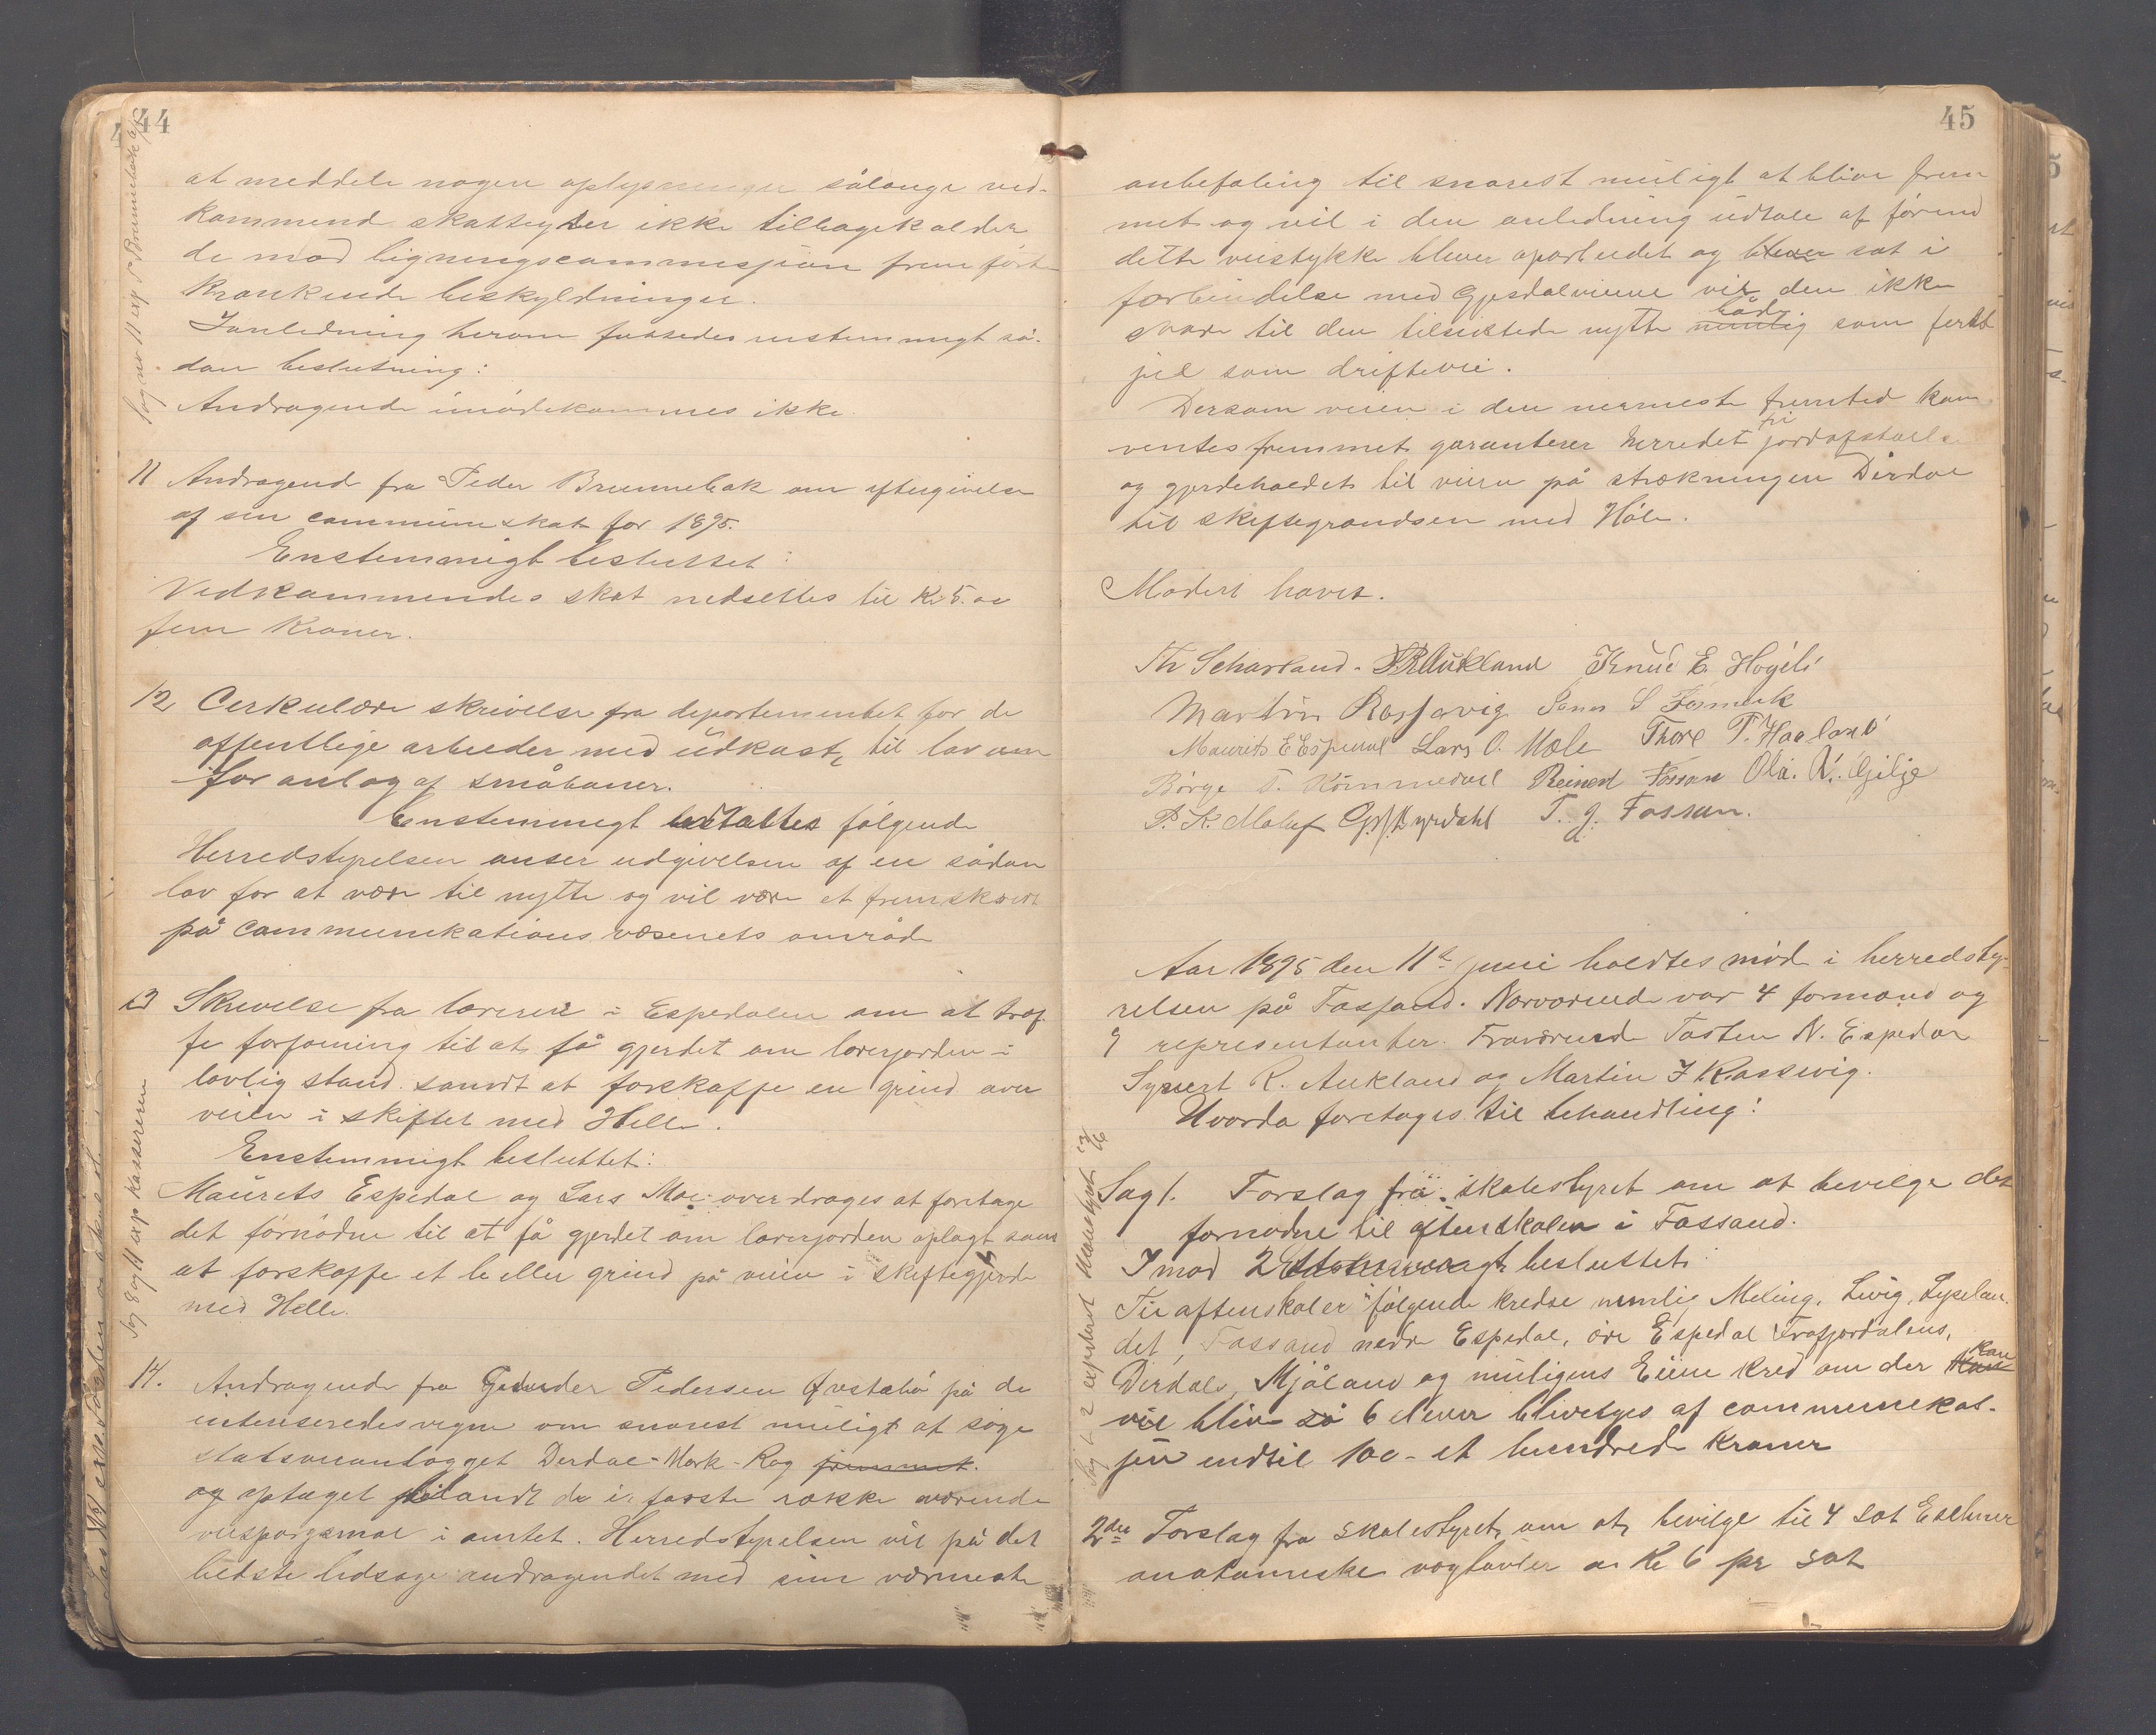 44
at meddele nogen oplysninger sålænge ved-
kommend skatteyder ikke tilbagekalder
de mod ligningscommissjion fremført
Krænkende beskyldninger.
I anledning herom fattedes enstemmigt så-
dan beslutning:
Andragende imødekommes ikke
11 Andragend fra Peder Brunnebak om eftergivelse
af sin communeskat for 1895.
Enstemmigt besluttet:
Vedkommendes skat nedsettes til Kr 5.00
fem Kroner.
12 Cirkulære skrivelse fra departementet for de
offentlige arbeider med udkast til lov om
for anlæg af småbaner.
Enstemmigt følgende
Herredstyrelsen anser udgivelsen af en sådan
lov for at være til nytte og vil være et fremskridt
på communikations væsenets område
13 Skrivelse fra læreren i Espedalen om at træf-
fe forføining til at få gjerdet om lærerjorden i
lovlig stand samdt at forskaffe en grind over
veien i skiftet med Helle.
Enstemmigt besluttet:
Maurets Espedal og Lars Mæle overdrages at foretage
det fornødne til at få gjerdet om lærerjorden oplagt samt
at forskaffe et le eller grind på veien i skiftegjerde
med Helle.
14. Andragende fra Pedersen Øvstebø på de
interesseredes vegne om snarest muligt at søge
statsveianlægget Dirdal-Mork-Rag fremmet.
og optaget blandt de i første række værende
veispørgsmål i amtet. Herredstyrelsen vil på det
bedste ledsage andragendet med sin varmeste
Sag 8 og 11 exp Kassereren
45
anbefaling til snarest muligt at blive frem
met og vil i den anledning udtale at førend
dette veistykke bliver oparbeidet og bliver sat i
forbindelse med Gjesdalveiene vil den ikke
svare til den tilsigtede nytte nemlig både som færd
sel som driftevei.
Dersom veien i den nærmeste fremtid kan
ventes fremmet garanterer herredet fri jordafståelse
og gjerdeholdet til veien på strækningen Dirdal
til skiftegrændsen med Høle.
Mødet hævet.
Th Scharland. Aukland Knud E. Høgeli
Martin Rossavig S Fosmark
Maurits E Espedal Lars O. Mæle Thore P. Haaland
Børge T. Kommedal Reinert Fossan Ola. N. Gilje
P. K. Maluf Dyrdahl T. J. Fossan.
Aar 1895 den 11te juni holdtes møde i herredsty-
relsen på Fossand. Nærværende var 4 formænd og
9 representanter. Fraværende Tosten N. Espedal
Syvert R. Aukland og Martin J Rossevig.
Hvorda foretoges til behandling:
Sag 1. Forslag fra skolestyret om at bevilge det
fornødne til aftenskolen i Fossand.
I mod 2 besluttet:
Til aftenskoler i følgende kredse nemlig Meling, Levig, Lyselan-
det, Fossand nedre Espedal, øvre Espedal Frafjordalens,
Dirdal, Mjåland og muligens Eiene kred om der kan
vil blive så 6 elever bliver af communekas-
sen indtil 100 - et hundrede kroner
2den Forslag fra skolestyret om at bevilge til 4 sæt
anatomiske vægtavler a Kr 6 pr sæt